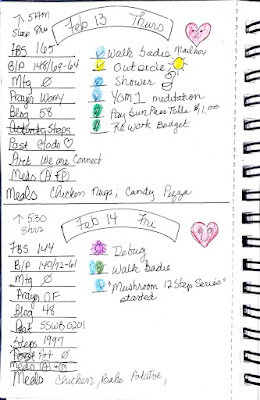 ↑ 5AM
Slept 8hrs
Feb 13 Thurs
FBS 165
B/P 148/69-64
Mtg Ø
Prayer Worry
Blog 58
Steps
Post ♡
Art We are Connect
Meds (A+P)
Meals Chicken Nugs, Candy Pizza
Walk Sadie
Out side
Shower
YOM 1 meditation
Pay Sun Pres Talk $1.00
Re Work Budget
↑ 5:30
8hrs
Feb 14 Fri
FBS 144
B/P 140/72-61
Mtg Ø
Prayer OF
Blog 48
Post SSWB0201
Steps 1997
Art Ø
Meds (A+P)
Meals Chicken, Bake Potatoe,
Debug
Walk Sadie
"Mushroom 12 Step Series"
started